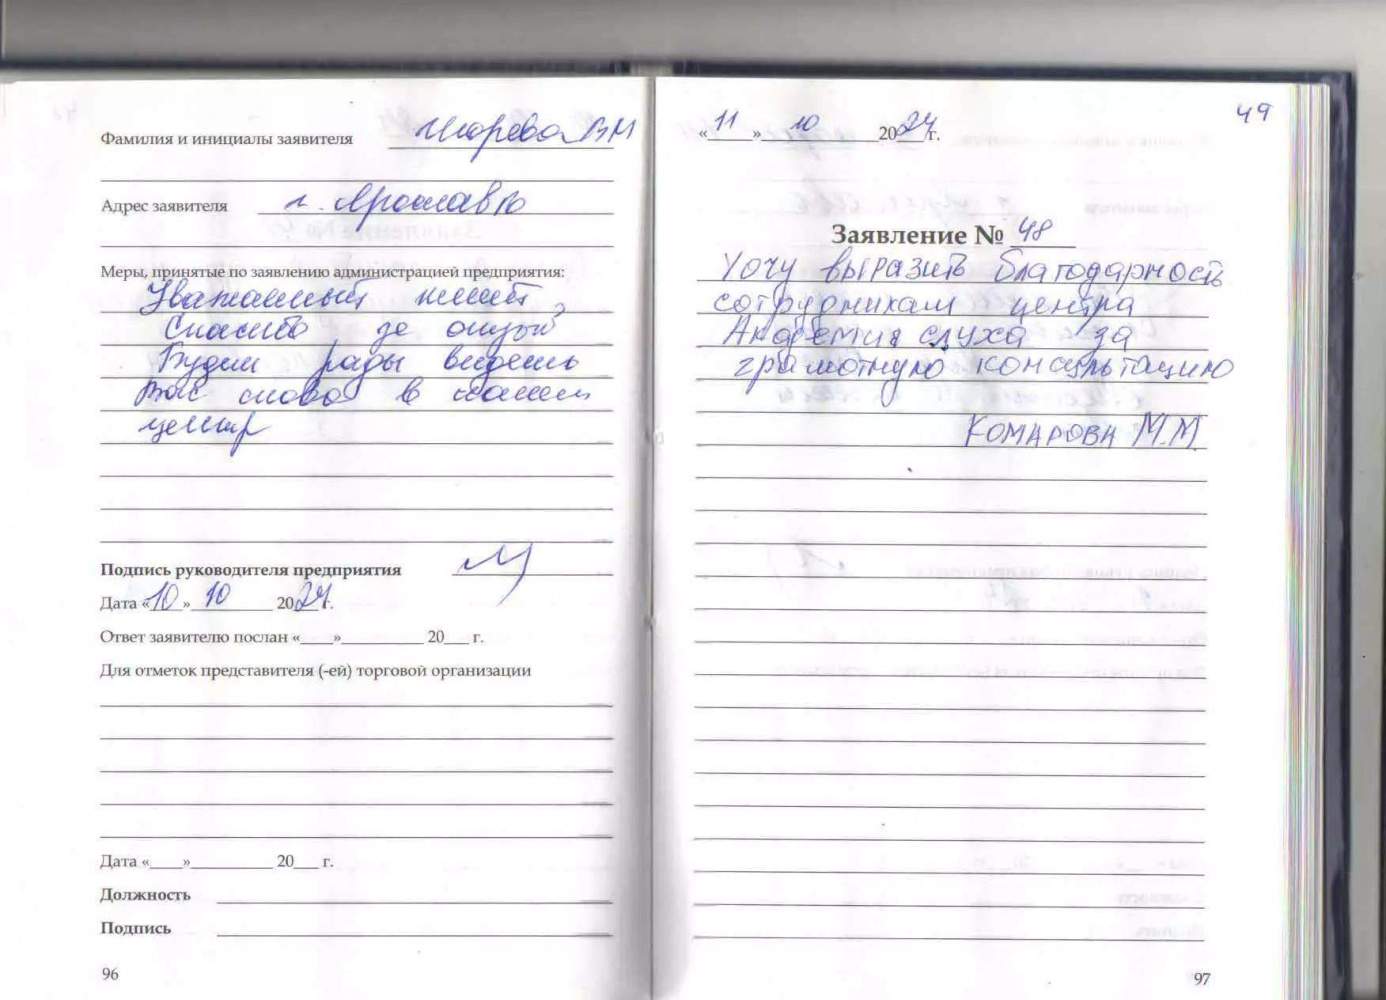 Фамилия и инициалы заявителя
Адрес заявителя г. Ярославль
Меры, принятые по заявлению администрацией предприятия:
Уважаемый клиент,
Спасибо за отзыв
Будем рады видеть
Вас снова в нашем
центр
Подпись руководителя предприятия
Дата «10» 10 2024г.
Ответ заявителю послан «___»__________ 20___ г.
Для отметок представителя (-ей) торговой организации
Дата «____»__________ 20___ г.
Должность
Подпись
96
49
«11» 10 2024г.
Заявление № 48
Хочу выразить благодарность
сотрудникам центра
Академия слуха за
грамотную консультацию
Комарова М.М.
97